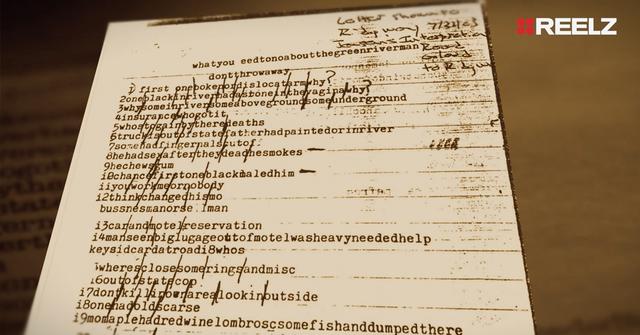 REELZ
7/22/03
whatyou eedtonoaboutthegreenriverman
dontthrowaway
1 first onebokenordislocatarmwhy?
2oneblackinriverhadastoneinthevaginawhy?
3whysominriversomeabovegroundsomeunderground
4insurancewhogotit
5whostogainbytheredeaths
6truckisoutofstatefatherhadpaintedorinriver
7somehadfingernalscutof
8hehadsexaftertheydeadhesmokes
9hechewsgum
i0chancefirstoneblackmaledhim
iiyouworkmeornobody
i2thinkchangedhismo
bussnesmanorse.lman
i3carandmotelreservation
i4manseenbiglugageoutofmotelwasheavyneededhelp
keysidcardatroadi8whos
wheresclosesomeringsandmisc
i6outofstatecop
i7dontkillinownarealookinoutside
i8onehadoldscarse
i9momaplehadredwinelombroscsomefishanddumpedthere